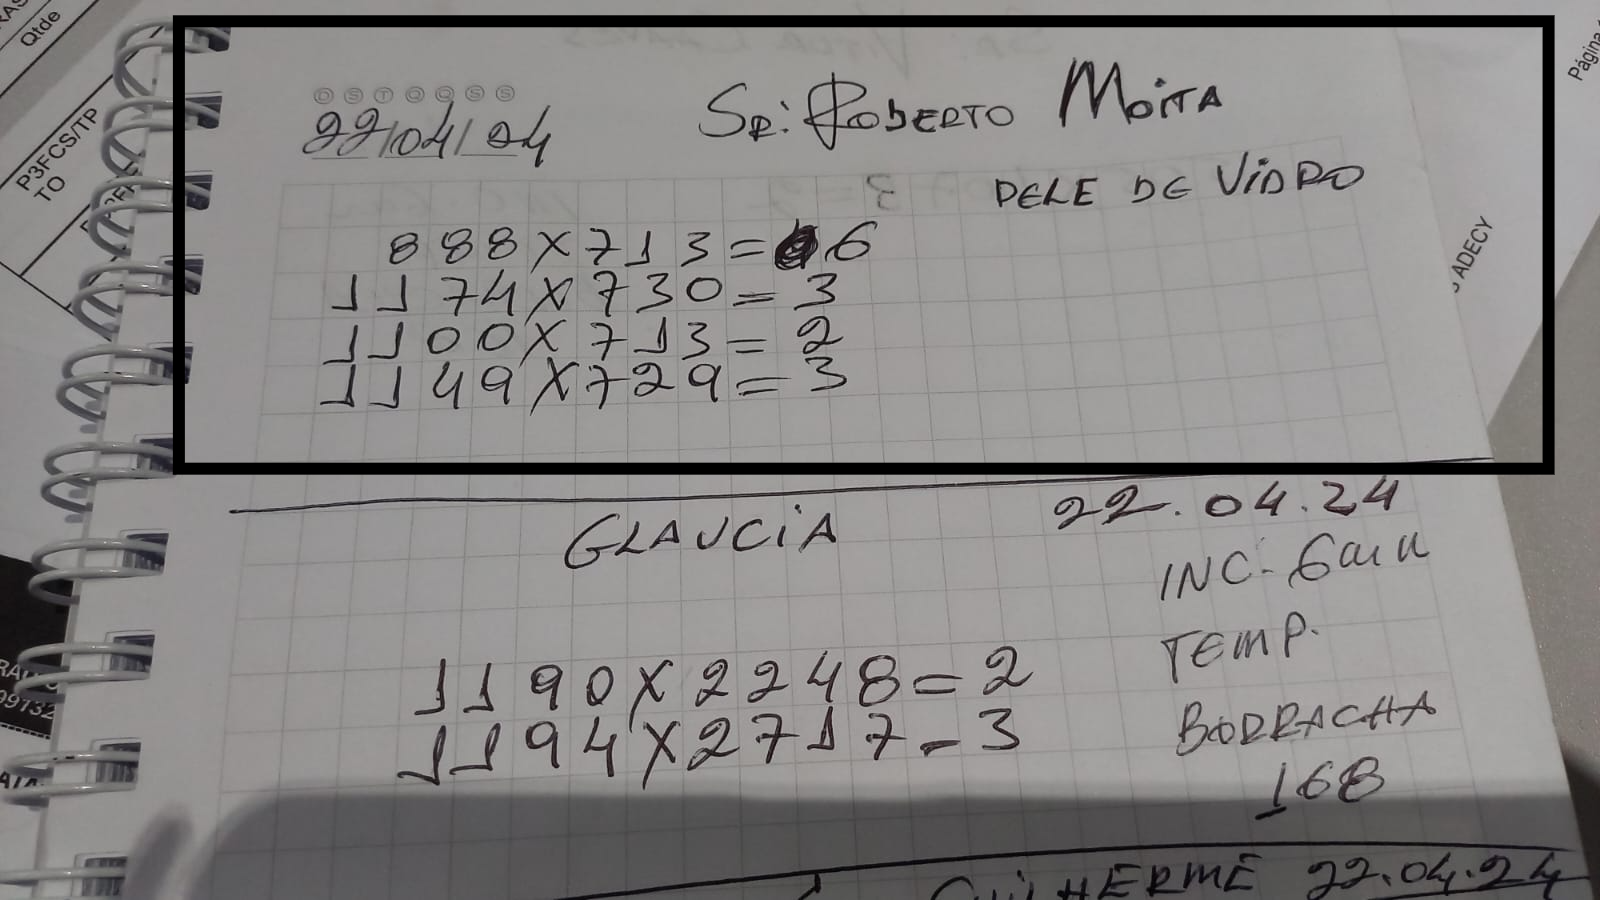 Qtde
P3FCS/TP
TO
Página
ADECY
D S T Q Q S S
22/04/24
Sr: Roberto Moita
PELE DE VIDRO
888X713=6
1174X730=3
1100X713=2
1149X729=3
GLAUCIA
22.04.24
INC. 6mm
TEMP.
1190X2248=2
1194X2717-3
BORRACHA
168
GUILHERME 22.04.24